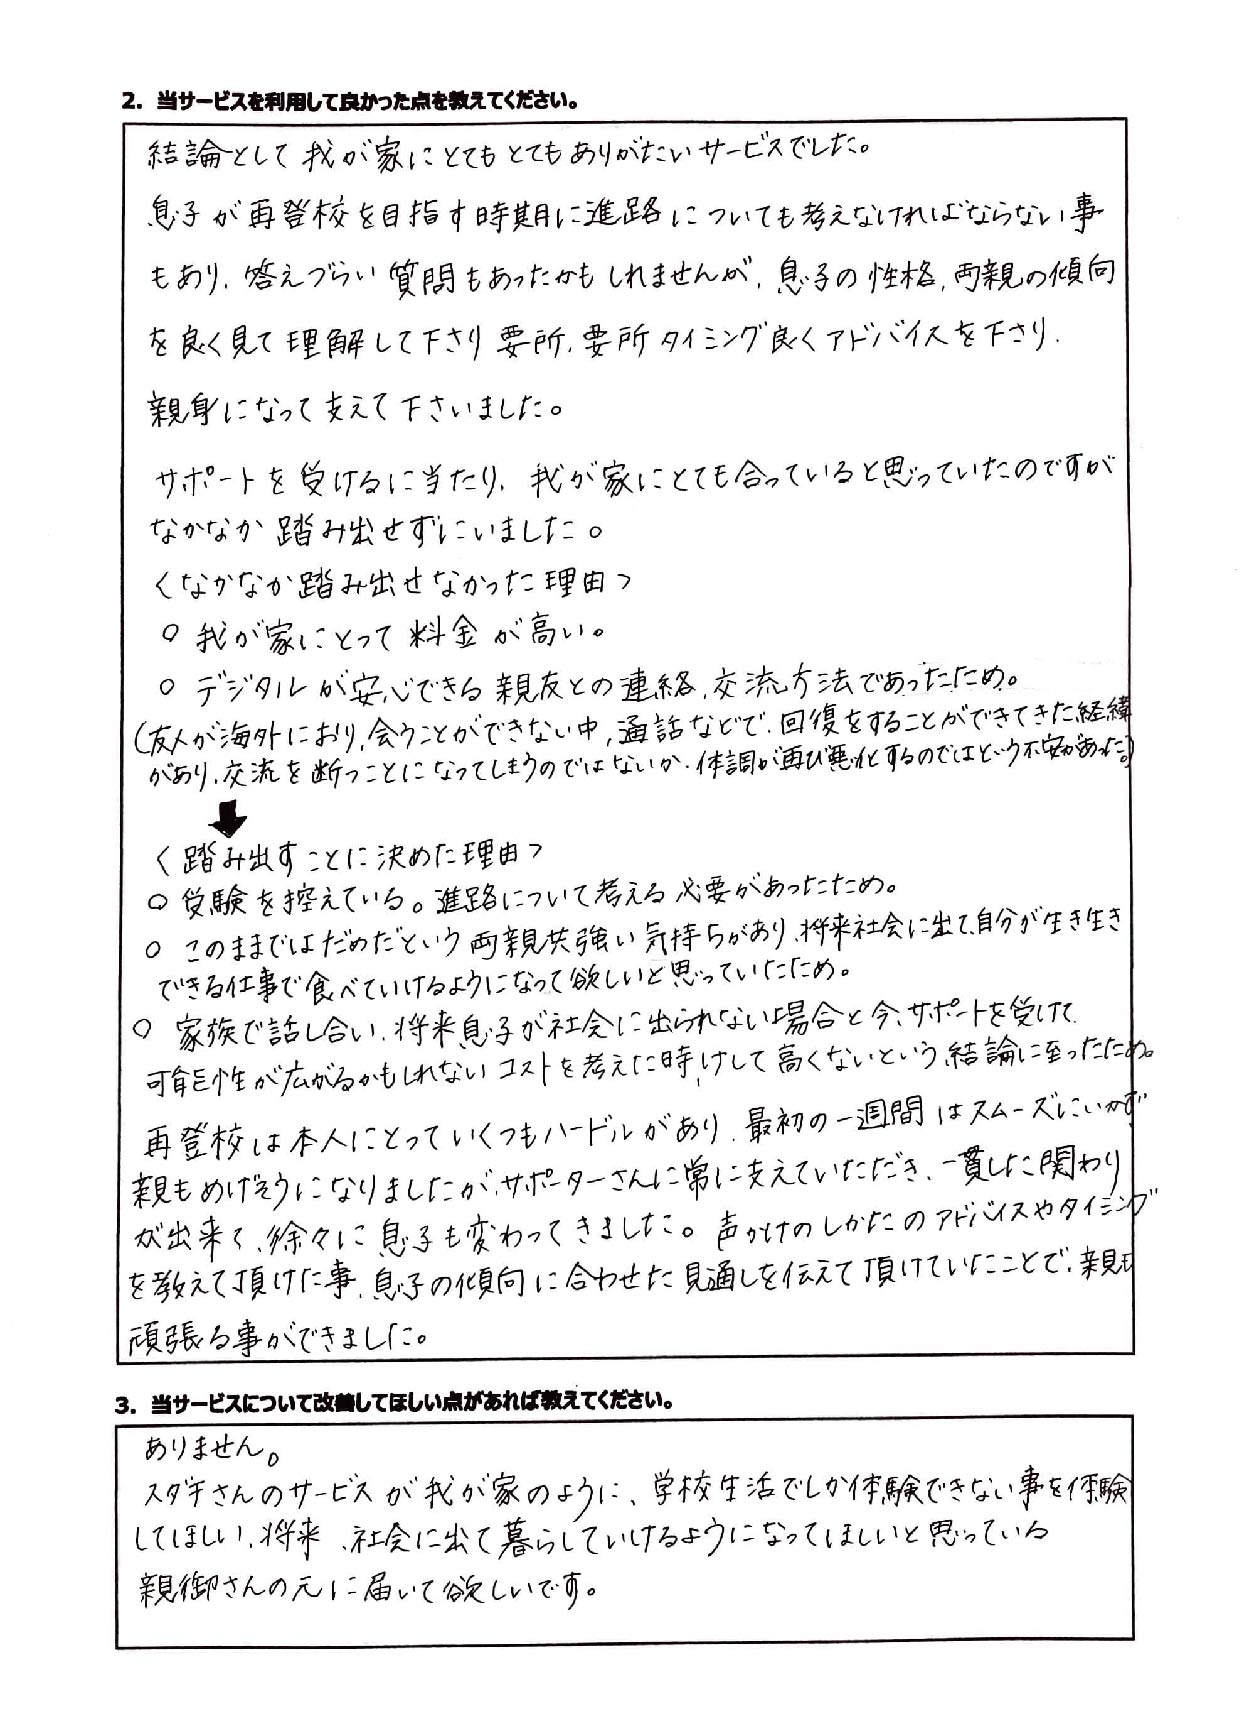 2. 当サービスを利用して良かった点を教えてください。
結論として我が家にとてもとてもありがたいサービスでした。
息子が再登校を目指す時期に進路についても考えなければならない事
もあり、答えづらい質問もあったかもしれませんが、息子の性格、両親の傾向
を良く見て理解して下さり要所、要所タイミング良くアドバイスを下さり、
親身になって支えて下さいました。
サポートを受けるに当たり、我が家にとても合っていると思っていたのですが
なかなか踏み出せずにいました。
<なかなか踏み出せなかった理由>
○ 我が家にとって料金が高い。
○ デジタルが安心できる親友との連絡、交流方法であったため。
(友人が海外におり、会うことができない中、通話などで、回復をすることができてきた経緯
があり、交流を断つことになってしまうのではないか、体調が再び悪化するのではという不安があった。)
⬇
<踏み出すことに決めた理由>
○ 受験を控えている。進路について考える必要があったため。
○ このままではだめだという両親共強い気持ちがあり、将来社会に出て、自分が生き生き
できる仕事で食べていけるようになって欲しいと思っていたため。
○ 家族で話し合い、将来息子が社会に出られない場合と今、サポートを受けて、
可能性が広がるかもしれないコストを考えた時、けして高くないという結論に至ったため。
再登校は本人にとっていくつもハードルがあり、最初の一週間はスムーズにいかず
親もめげそうになりましたが、サポーターさんに常に支えていただき、一貫した関わり
が出来て、徐々に息子も変わってきました。声かけのしかたのアドバイスやタイミング
を教えて頂けた事、息子の傾向に合わせた見通しを伝えて頂けていたことで、親も
頑張る事ができました。
3. 当サービスについて改善してほしい点があれば教えてください。
ありません。
スダチさんのサービスが我が家のように、学校生活でしか体験できない事を体験
してほしい、将来、社会に出て暮らしていけるようになってほしいと思っている
親御さんの元に届いて欲しいです。